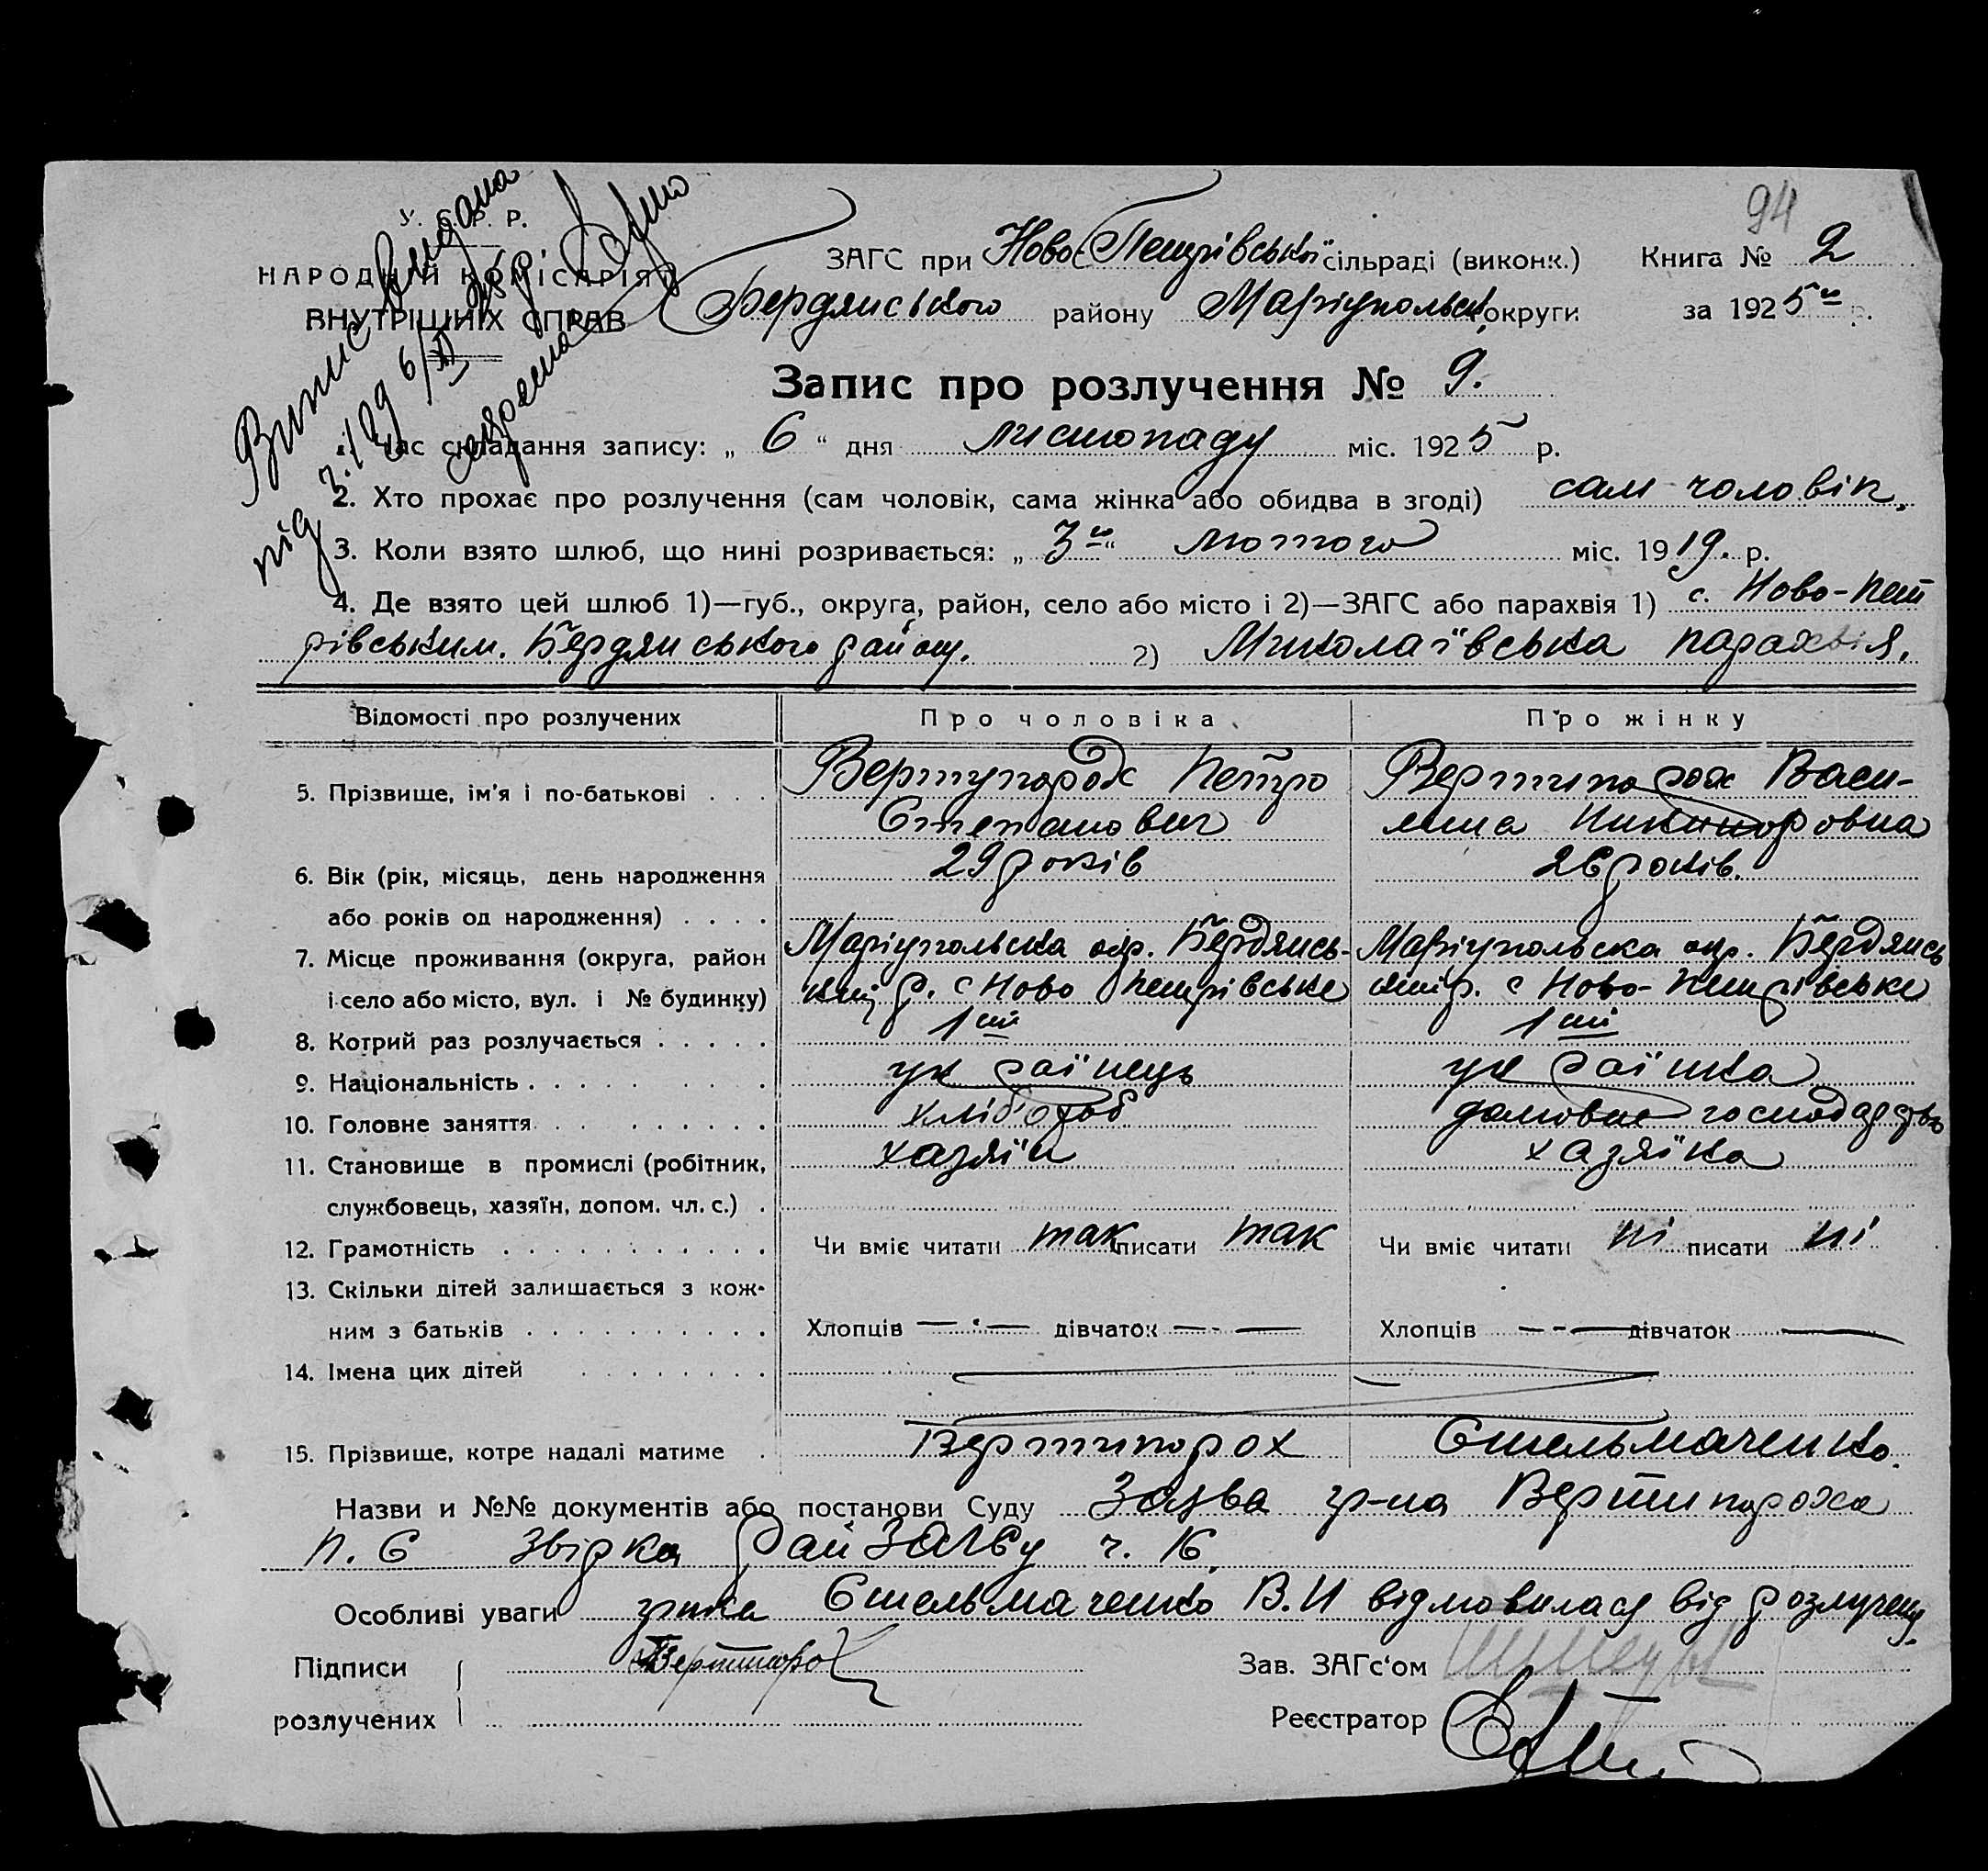 94
У. С. Р. Р.
НАРОДНІЙ КОМІСАРІЯТ
ВНУТРІШНІХ СПРАВ
Випис видана
під ч. 129 6/XI 25 р.
ЗАГС при Ново-Петрівській сільраді (виконк.) Книга № 2
Бердянського району Маріупольськ. округи за 1925 р.
Запис про розлучення № 9.
1. Час складання запису: „ 6 “ дня листопаду міс. 1925 р.
2. Хто прохає про розлучення (сам чоловік, сама жінка або обидва в згоді) сам чоловік,
3. Коли взято шлюб, що нині розривається: „ 3го “ лютого міс. 1919. р.
4. Де взято цей шлюб 1)—губ., округа, район, село або місто і 2)—ЗАГС або парахвія 1) с. Ново-Пет
рівським. Бердянського району. 2) Миколаївська парахвія.
Відомості про розлучених Про чоловіка Про жінку
5. Прізвище, ім'я і по-батькові . . . Вертипорох Петро Вертипорох Васи-
Степанович лиса Никиноровна
6. Вік (рік, місяць, день народження 29 років 26 років.
або років од народження) . . . .
7. Місце проживання (округа, район Маріупольська окр. Бердянсь- Маріупольска окр. Бердянсь
і село або місто, вул. і № будинку) кий р. с Ново Петрівське кий р. с Ново-Петрівське
8. Котрий раз розлучається . . . . . 1ий 1ий
9. Національність . . . . українець українка
10. Головне заняття . . . . хлібороб домовне господарств
11. Становище в промислі (робітник, хазяїн хазяїка
службовець, хазяїн, допом. чл. с.) .
12. Грамотність . . . . . . . . . . . Чи вміє читати так писати так Чи вміє читати ні писати ні
13. Скільки дітей залишається з кож-
ним з батьків . . . . . . . . . . Хлопців — дівчаток — Хлопців — дівчаток —
14. Імена цих дітей . . . . . . . .
15. Прізвище, котре надалі матиме . Вертипорох Стельмаченко.
Назви и №№ документів або постанови Суду Заява гр-на Вертипороха
П. С звірка РайЗАГСу ч. 16.
Особливі уваги гр-нка Стельмаченко В. Н відмовилася від розлучену.
Підписи Вертипорох Зав. ЗАГс'ом
розлучених Реєстратор